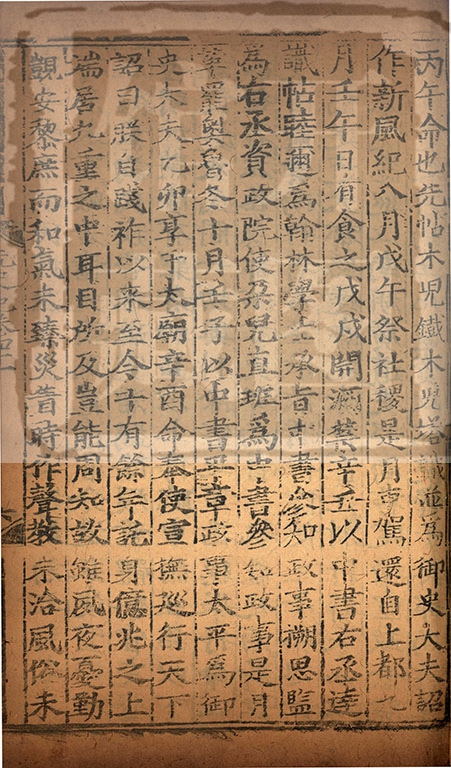 丙午命也先帖木児鐵木児塔識並為御史大夫詔
作新風紀八月戊午祭社稷是月車駕還自上都九
月壬午日有食之戊戌開酒禁辛丑以中書右丞達
識帖睦邇為翰林學士承旨中書參知政事搠思監
為右丞資政院使朶兒直班為中書參知政事是月
革罷奧魯冬十月壬子以中書平章政事太平為御
史大夫乙卯享于太廟辛酉命奉使宣撫巡行天下
詔曰朕自踐祚以来至今十有餘年託身億兆之上
端居九重之中耳目所及豈能周知故雖夙夜憂勤
覬安黎庶而和氣未臻災眚時作聲教未洽風俗未